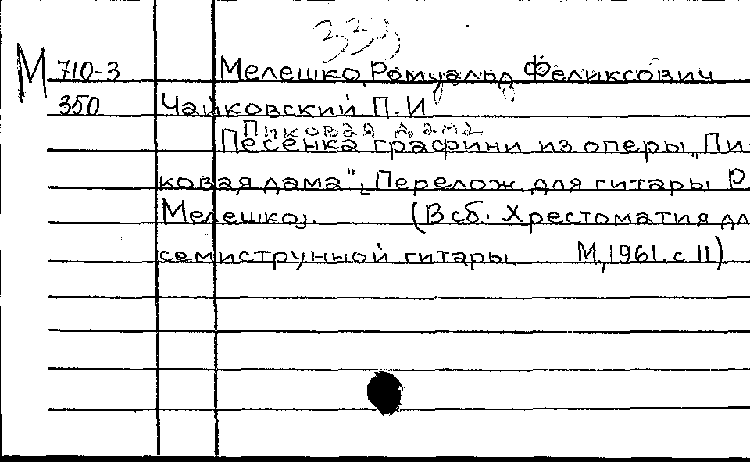 333
М 710-3 Мелешко, Ромуальд Феликсович
350 Чайковский П.И
Пиковая дама
Песенка графини из оперы „Пи-
ковая дама". Перелож. для гитары Р.
Мелешко). (В сб. Хрестоматия дл
семиструнной гитары М, 1961. с 11)